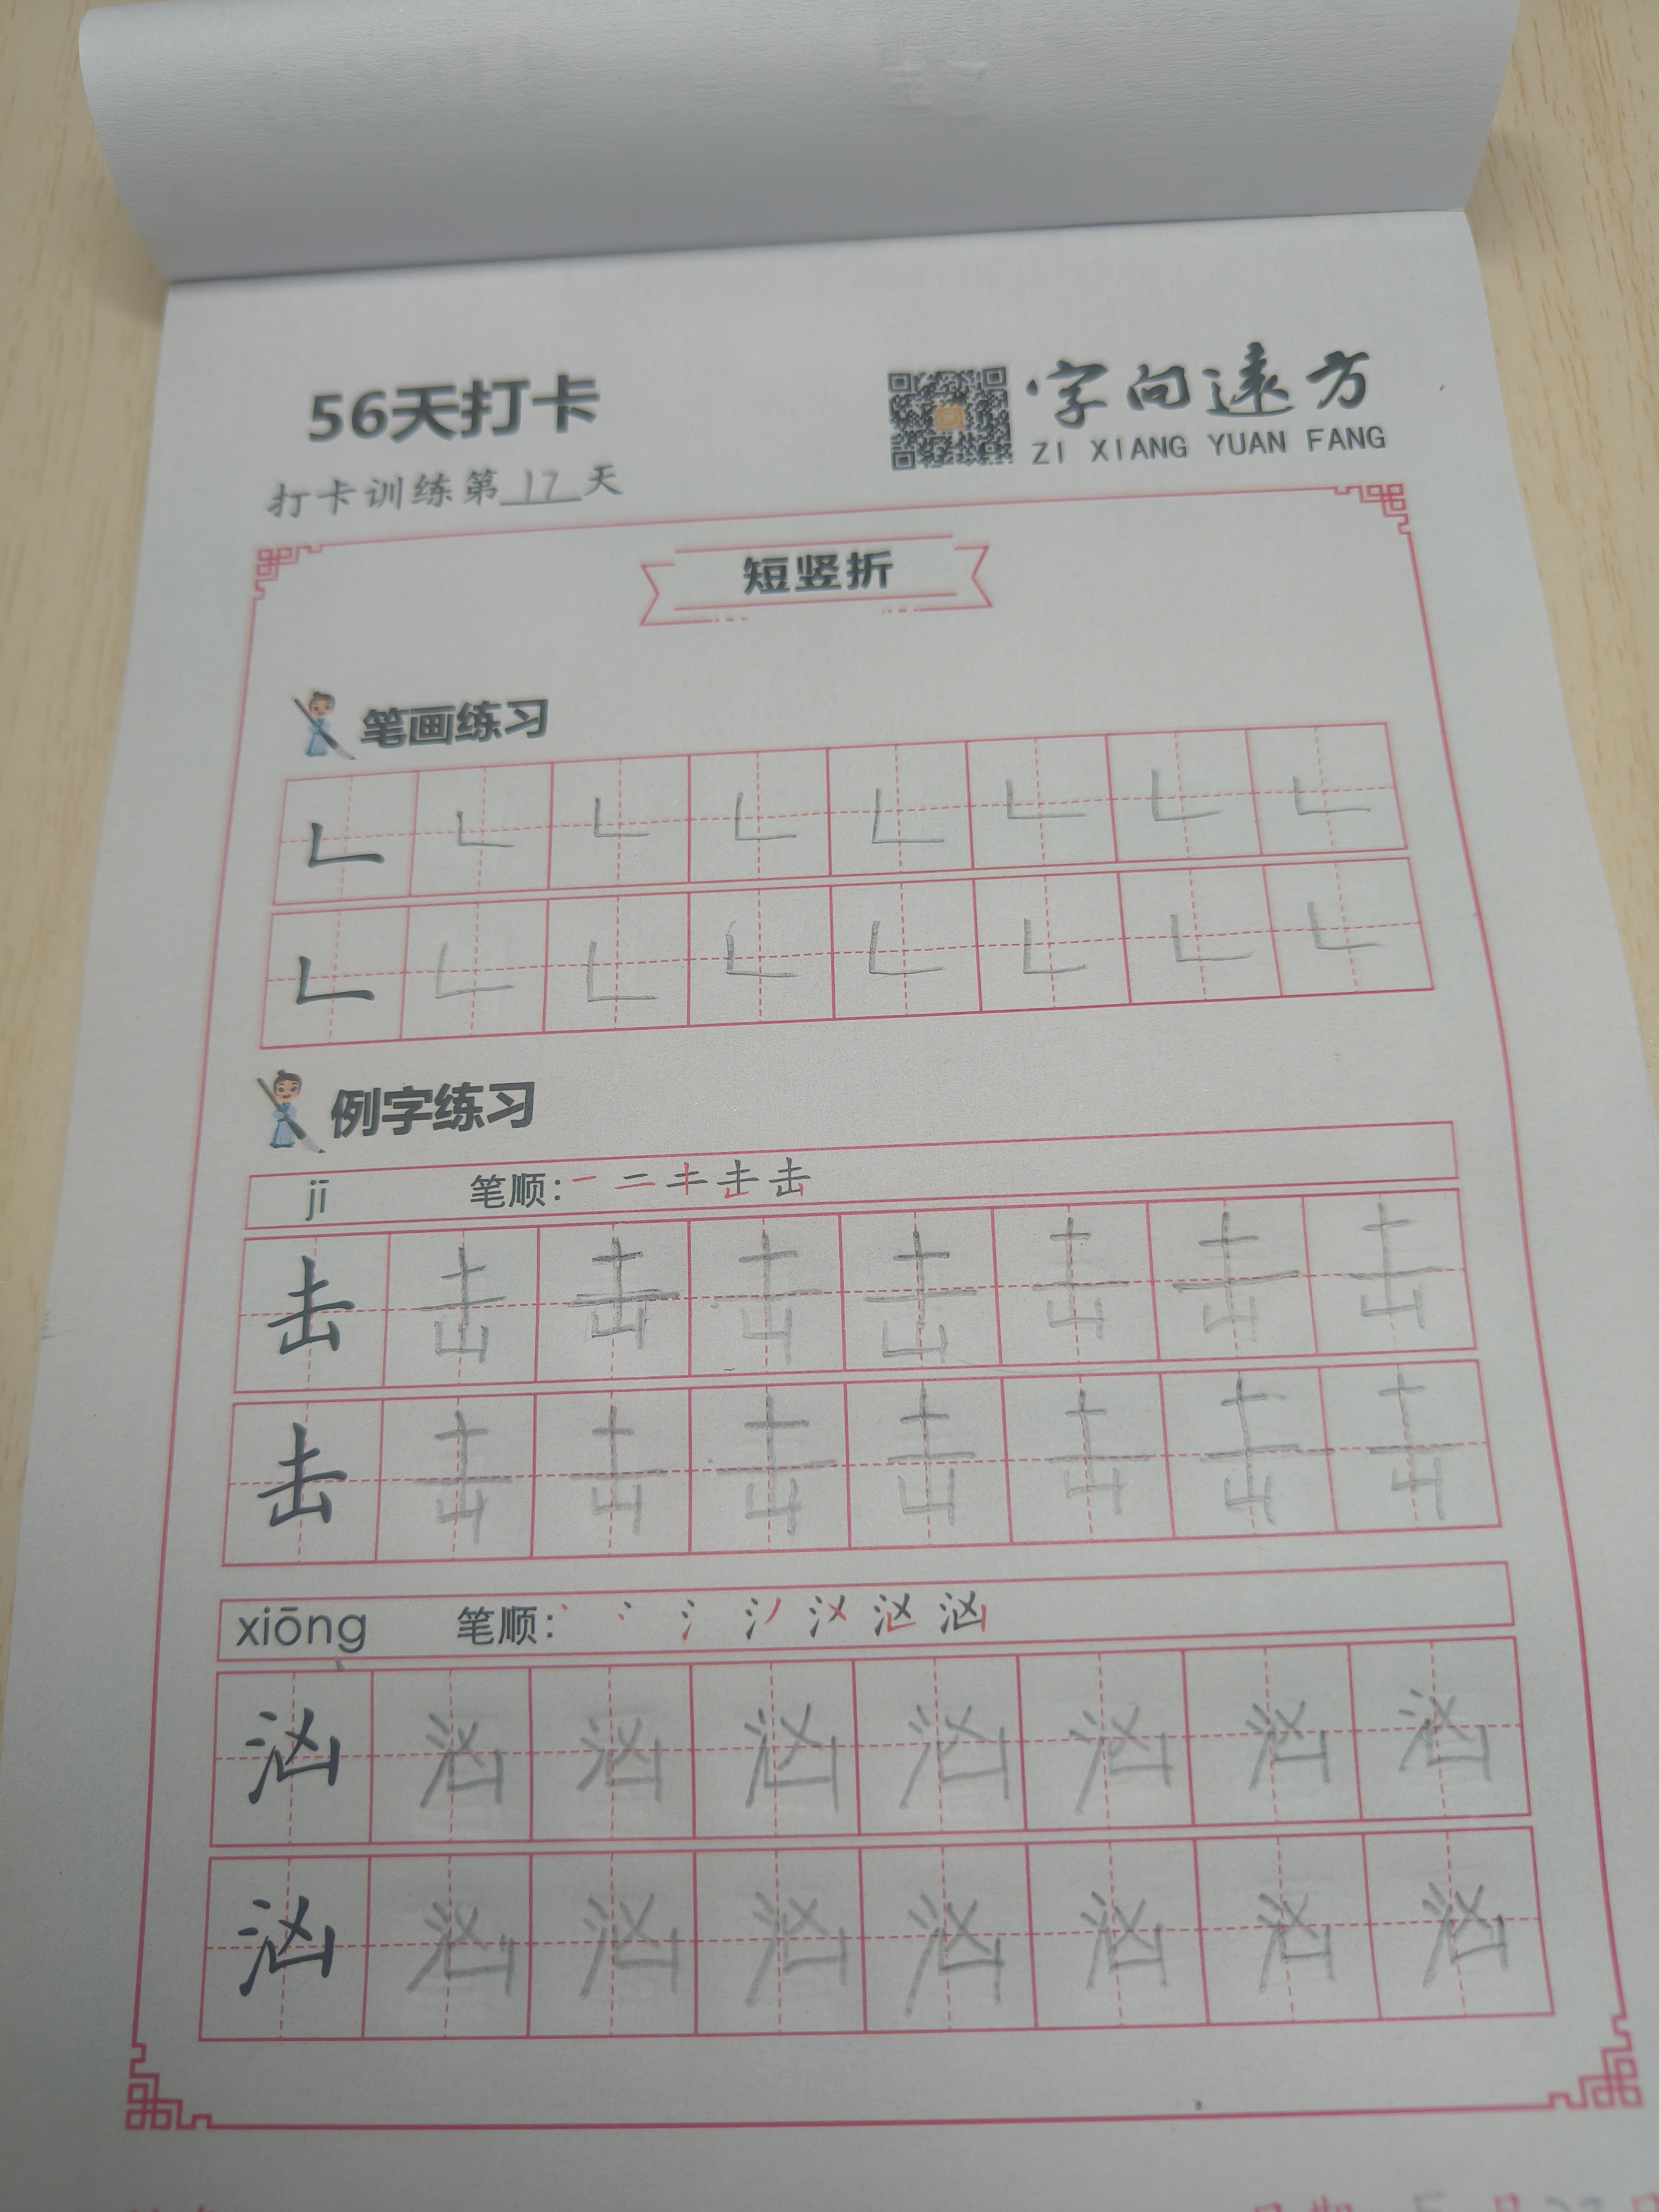 56天打卡
字向遠方
ZI XIANG YUAN FANG
打卡训练第17天
短竖折
笔画练习
𠃊 𠃊 𠃊 𠃊 𠃊 𠃊 𠃊 𠃊
𠃊 𠃊 𠃊 𠃊 𠃊 𠃊 𠃊 𠃊
例字练习
jī 笔顺:一 二 キ 击 击
击 击 击 击 击 击 击 击
击 击 击 击 击 击 击 击
xiōng 笔顺: 氵 汹
汹 汹 汹 汹 汹 汹 汹 汹
汹 汹 汹 汹 汹 汹 汹 汹